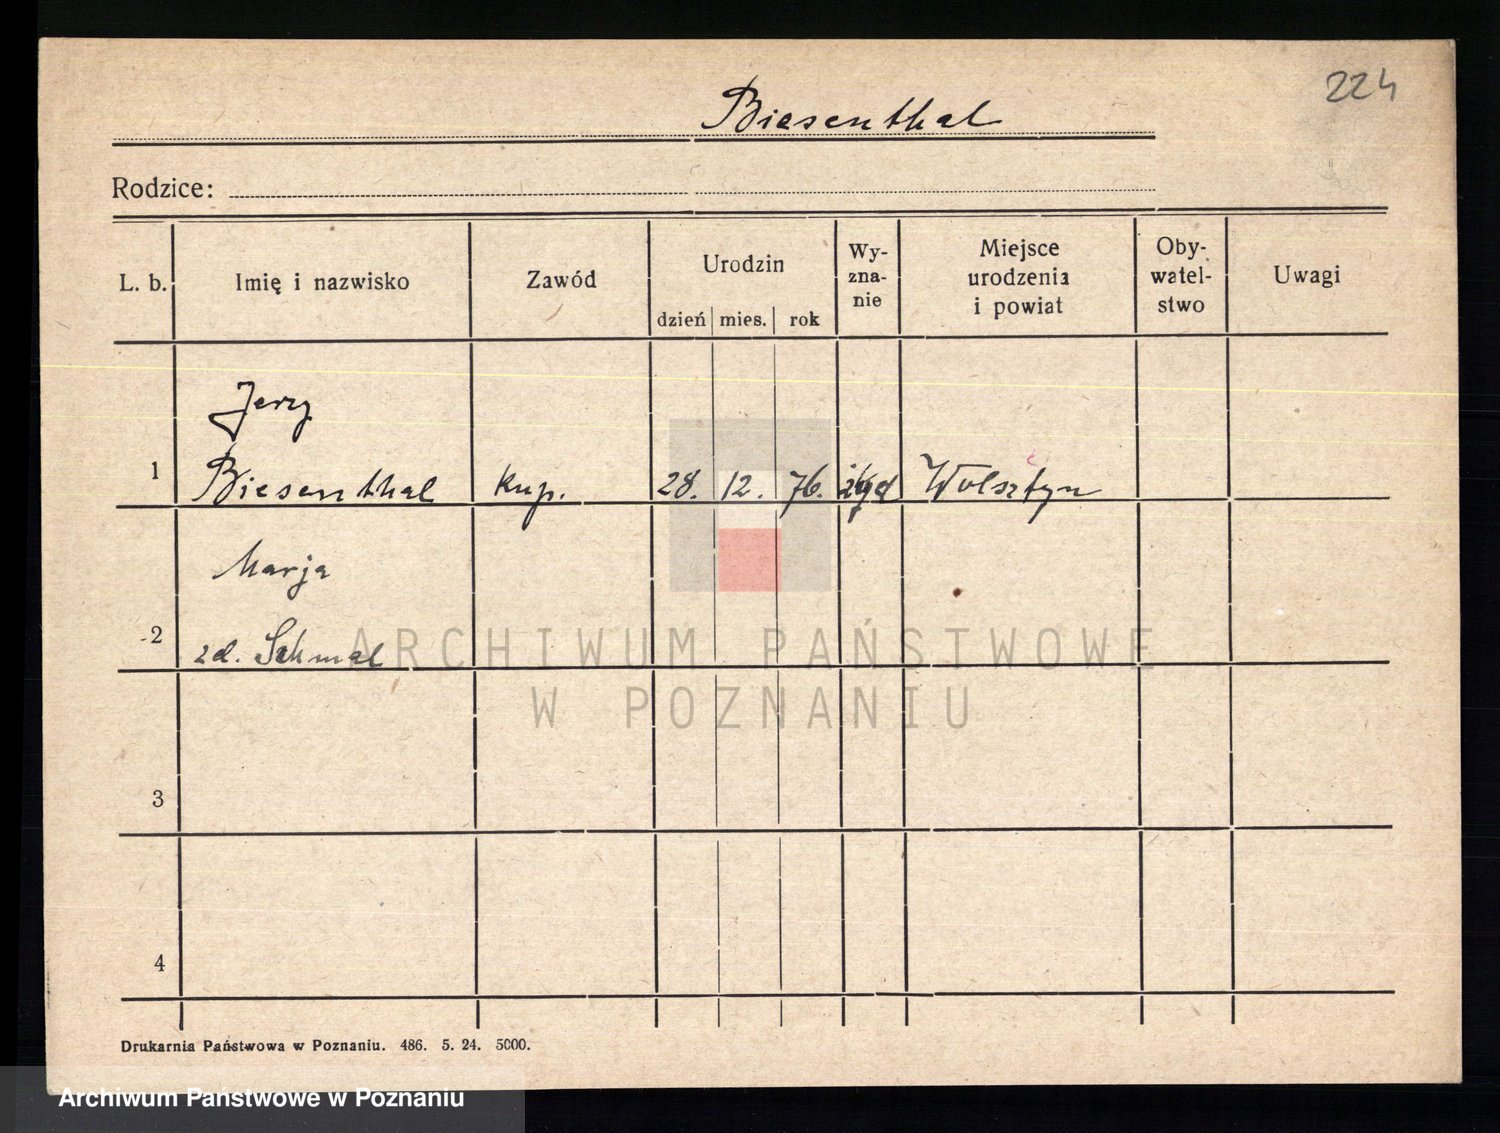 224
Biesenthal
Rodzice:
L. b. Imię i nazwisko Zawód Urodzin dzień mies. rok Wy-zna-nie Miejsce urodzenia i powiat Oby-watel-stwo Uwagi
Jerzy
1 Biesenthal kup. 28. 12. 76. żyd Wolsztyn
Marja
2 zd. Schmal
ARCHIWUM PAŃSTWOWE
W POZNANIU
3
4
Drukarnia Państwowa w Poznaniu. 486. 5. 24. 5000.
Archiwum Państwowe w Poznaniu